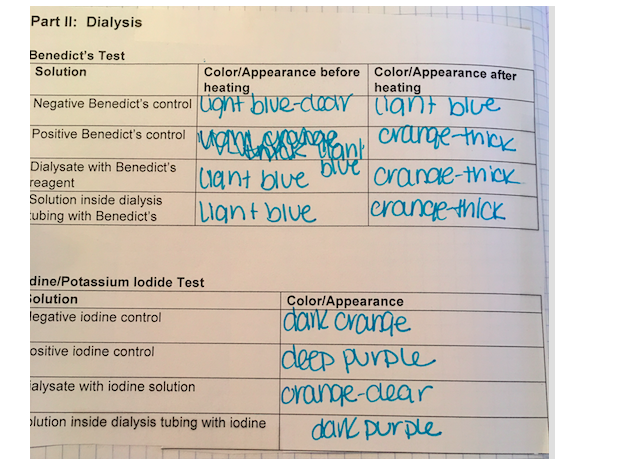 Part II: Dialysis
Benedict's Test
Solution Color/Appearance before heating Color/Appearance after heating
Negative Benedict's control Light blue-clear light blue
Positive Benedict's control light blue orange-thick
Dialysate with Benedict's reagent Light blue orange-thick
Solution inside dialysis tubing with Benedict's Light blue orange-thick
dine/Potassium Iodide Test
Solution Color/Appearance
legative iodine control dark orange
ositive iodine control deep purple
alysate with iodine solution orange-clear
olution inside dialysis tubing with iodine dark purple